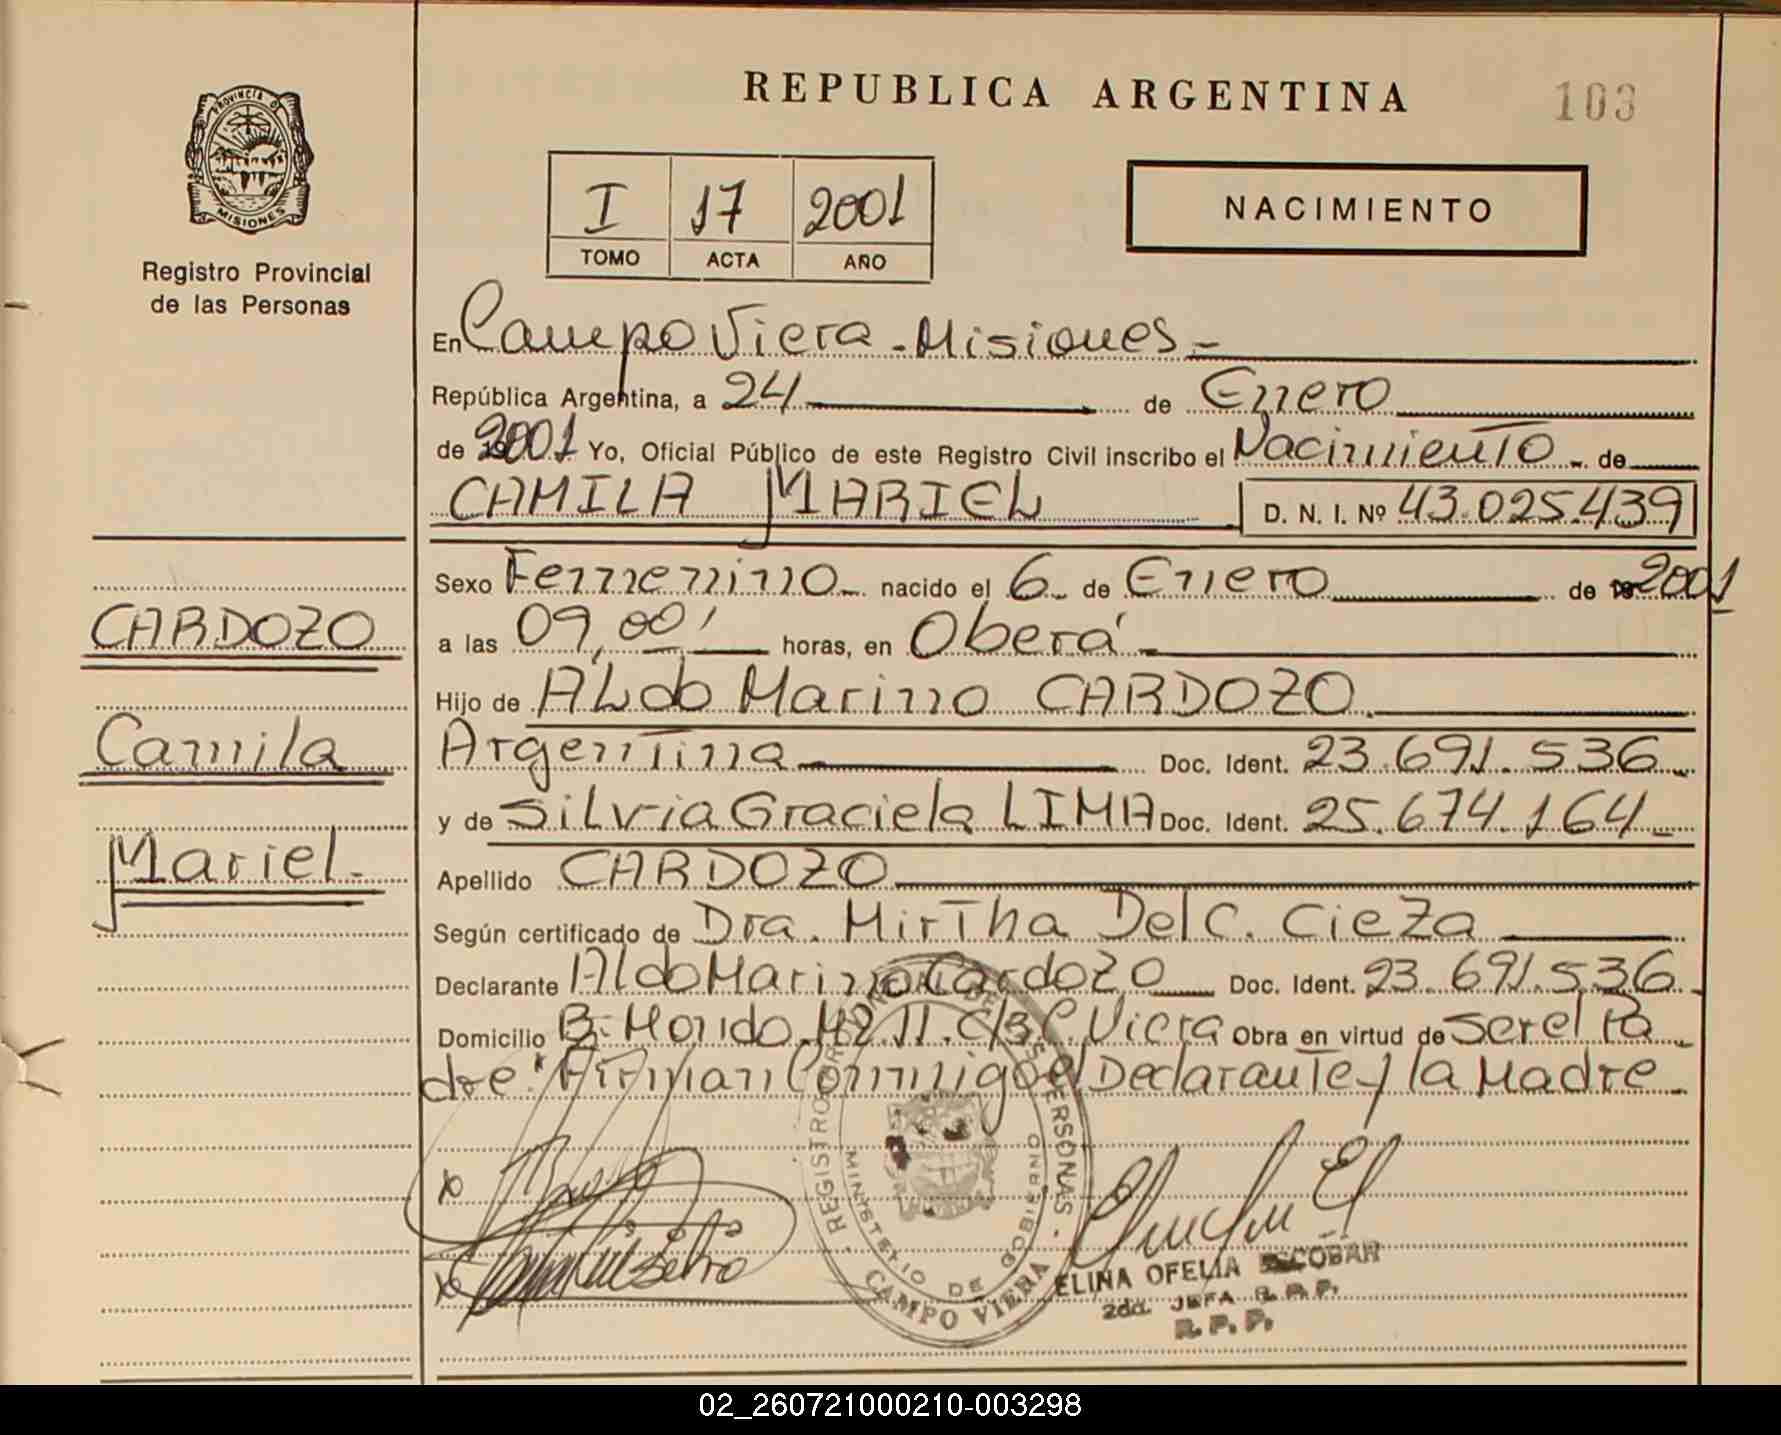 REPUBLICA ARGENTINA
103
PROVINCIA D
MISIONES
Registro Provincial
de las Personas
I 17 2001
TOMO ACTA AÑO
NACIMIENTO
En Campo Viera - Misiones -
República Argentina, a 24 de Enero
de 2001 Yo, Oficial Público de este Registro Civil inscribo el Nacimiento - de
CAMILA MARIEL D. N. I. Nº 43.025.439
Sexo Femenino - nacido el 6 - de Enero de 2001
a las 09,00' horas, en Oberá
Hijo de ALdo Marino CARDOZO
Argentina Doc. Ident. 23.691.536 -
y de SiLvia Graciela LIMA Doc. Ident. 25.674.164 -
Apellido CARDOZO
Según certificado de Dra. Mirtha Del C. Cieza
Declarante Aldo Marino Cardozo Doc. Ident. 23.691.536 -
Domicilio B: Mondo. M2 11. C/3 C. Viera Obra en virtud de ser el Pa
dre. Firman Conmigo el Declarante y la Madre -
CARDOZO
Camila
Mariel -
REGISTRO PROVINCIAL DE LAS PERSONAS
MINISTERIO DE GOBIERNO
CAMPO VIERA
ELINA OFELIA ESCOBAR
2da. JEFA R. P. P.
R. P. P.
02_260721000210-003298